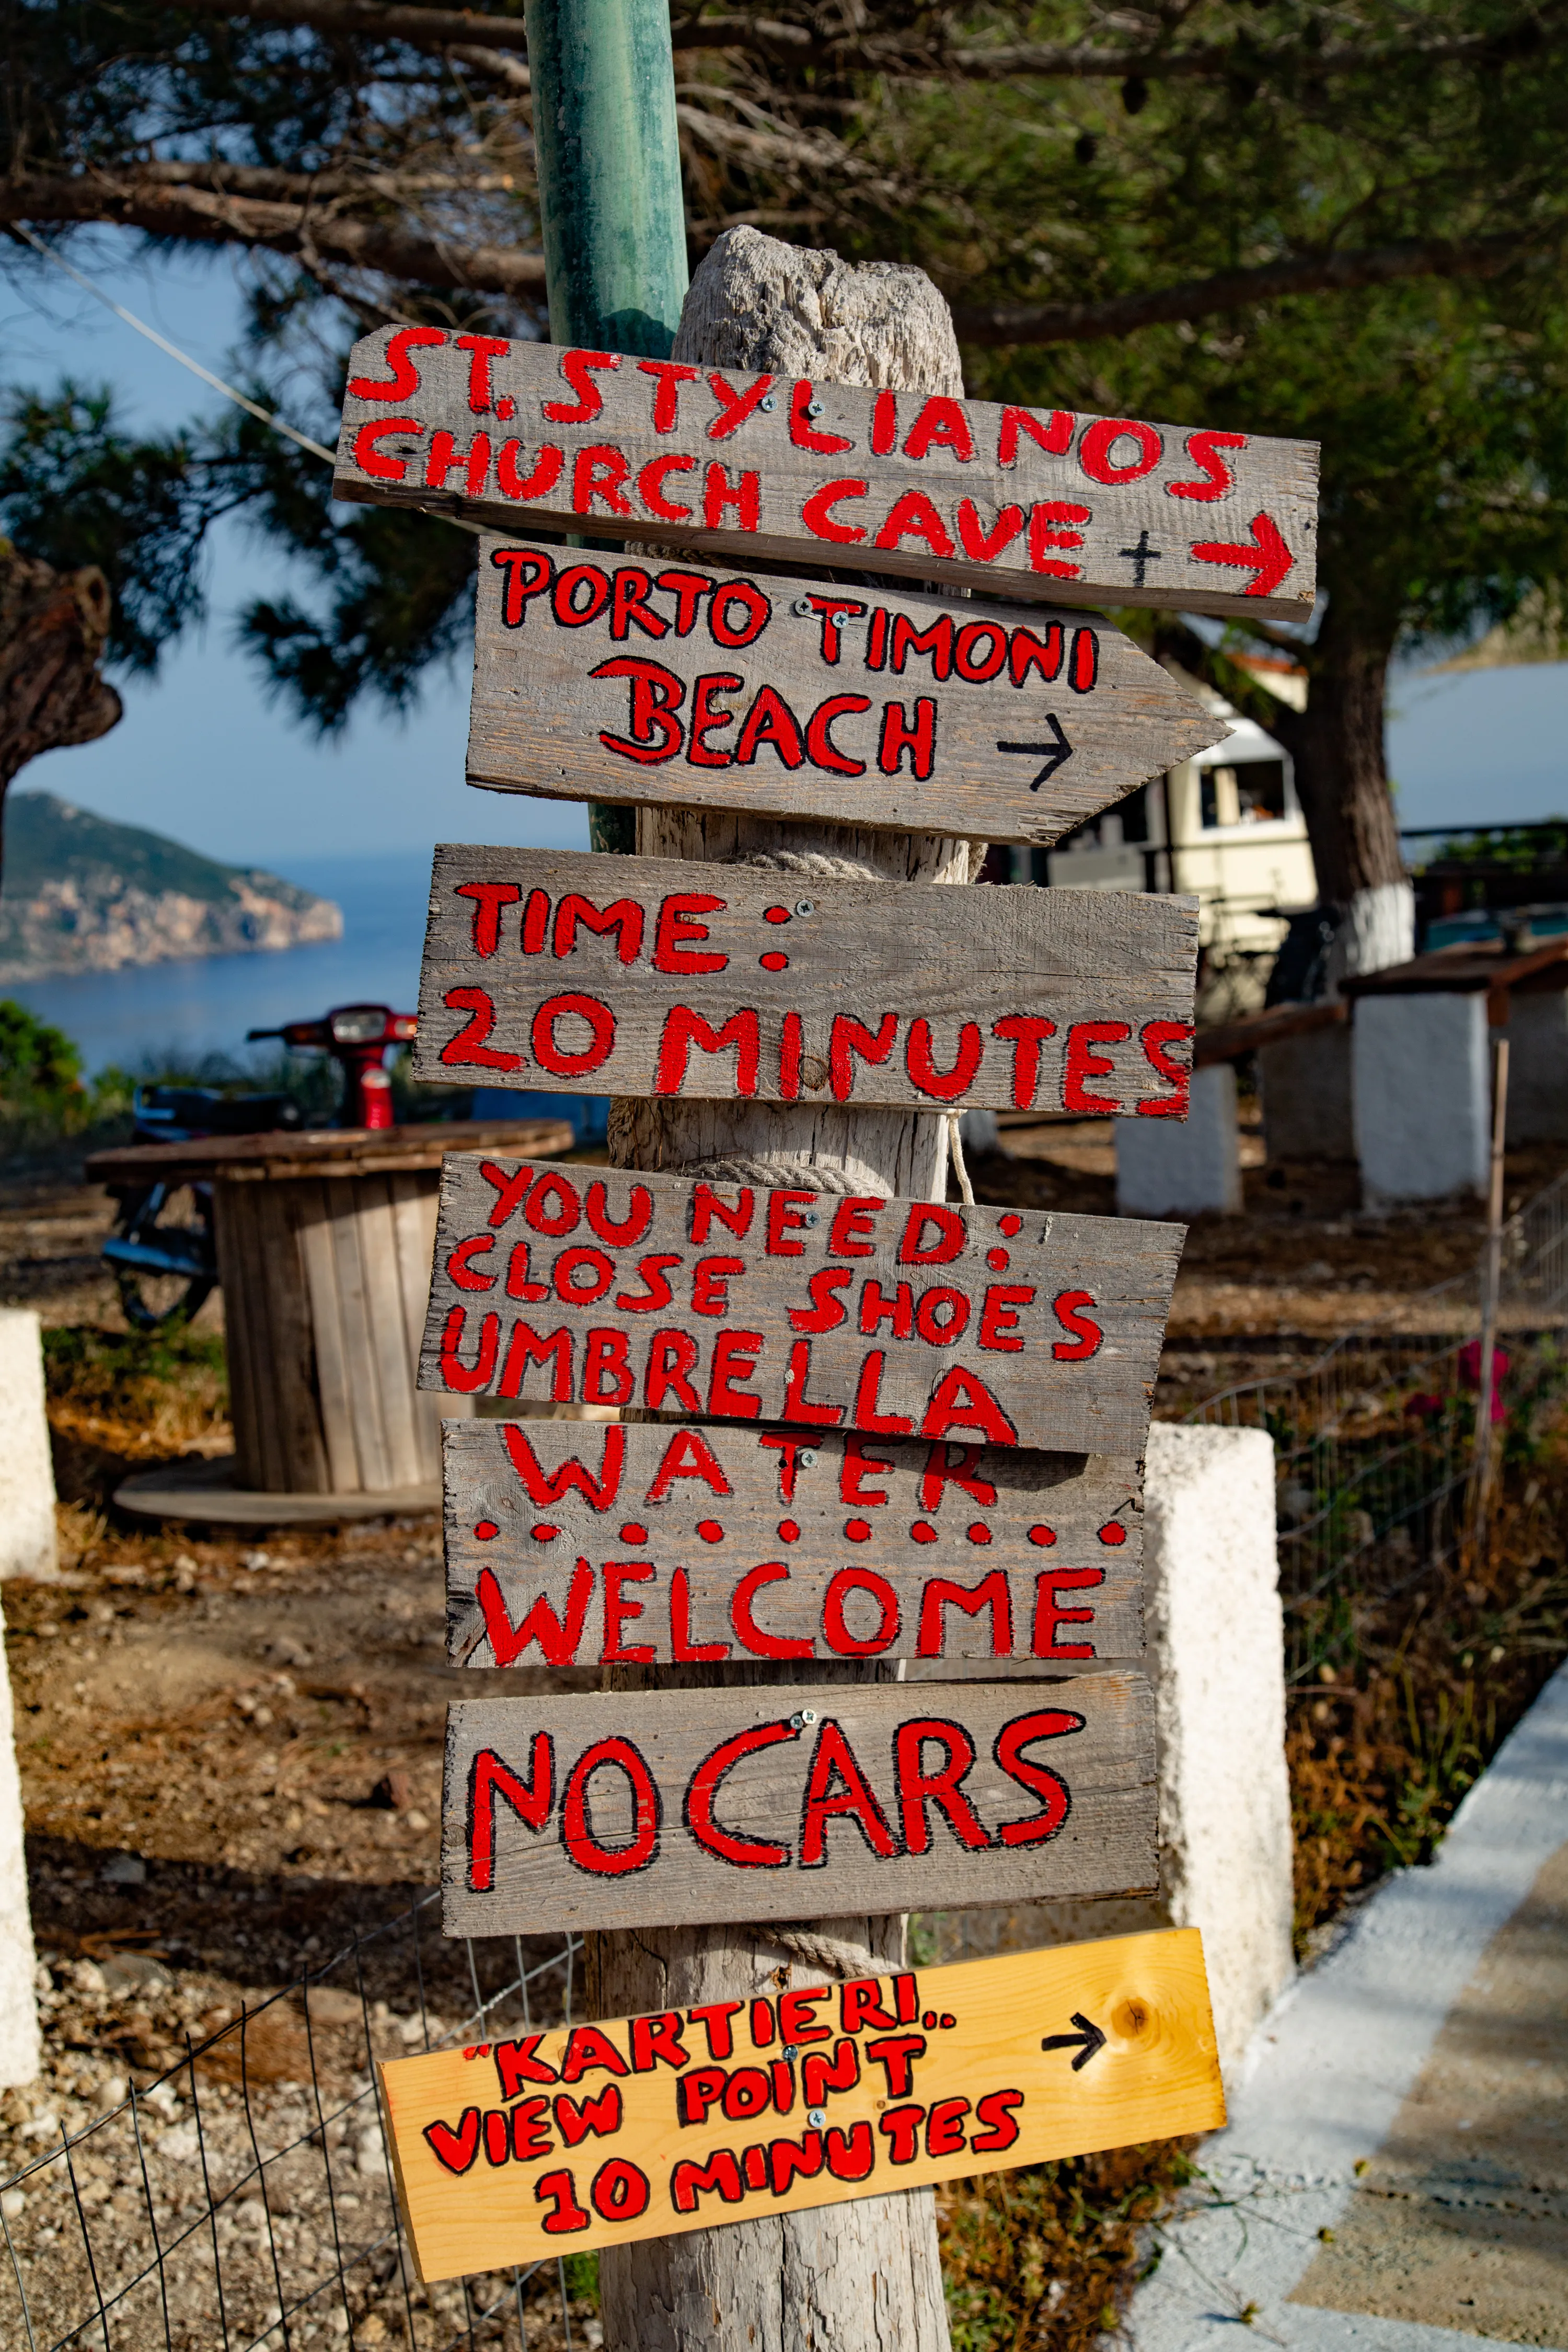 ST. STYLIANOS
CHURCH CAVE † →
PORTO TIMONI
BEACH →
TIME:
20 MINUTES
YOU NEED:
CLOSE SHOES
UMBRELLA
WATER
..........
WELCOME
NO CARS
"KARTIERI..
VIEW POINT →
10 MINUTES